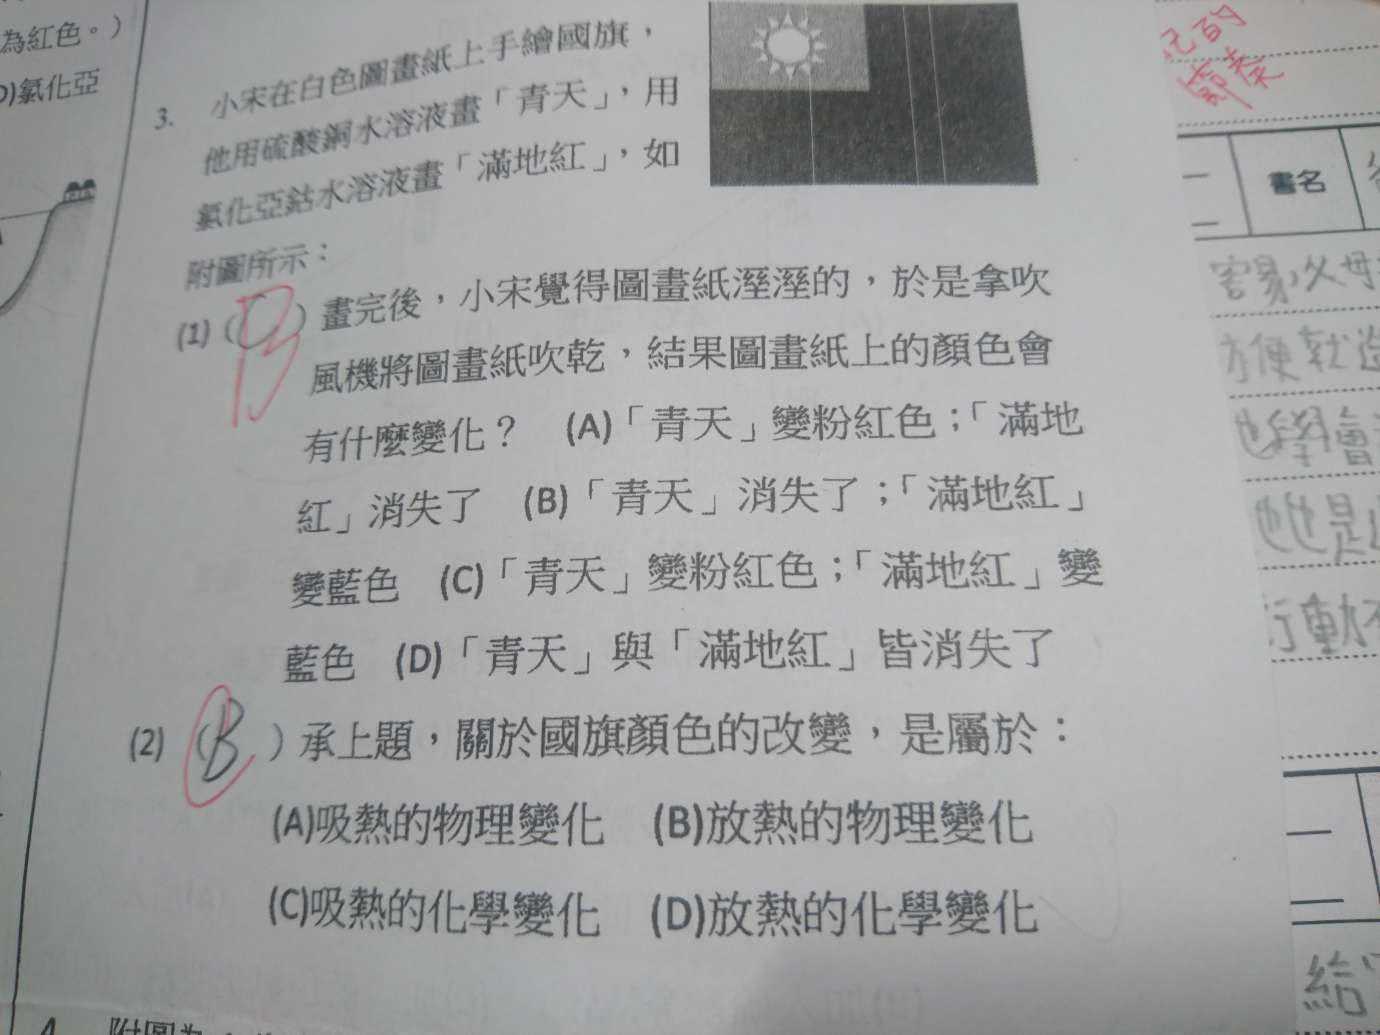 為紅色。）
D)氯化亞
3. 小宋在白色圖畫紙上手繪國旗，
他用硫酸銅水溶液畫「青天」，用
氯化亞鈷水溶液畫「滿地紅」，如
附圖所示：
(1) ( ) 畫完後，小宋覺得圖畫紙溼溼的，於是拿吹
B
風機將圖畫紙吹乾，結果圖畫紙上的顏色會
有什麼變化？ (A)「青天」變粉紅色；「滿地
紅」消失了 (B)「青天」消失了；「滿地紅」
變藍色 (C)「青天」變粉紅色；「滿地紅」變
藍色 (D)「青天」與「滿地紅」皆消失了
(2) (B) 承上題，關於國旗顏色的改變，是屬於：
(A)吸熱的物理變化 (B)放熱的物理變化
(C)吸熱的化學變化 (D)放熱的化學變化
4. 附圖為
書名
容易，父母
方便就
也學會
他也是
行動不
給